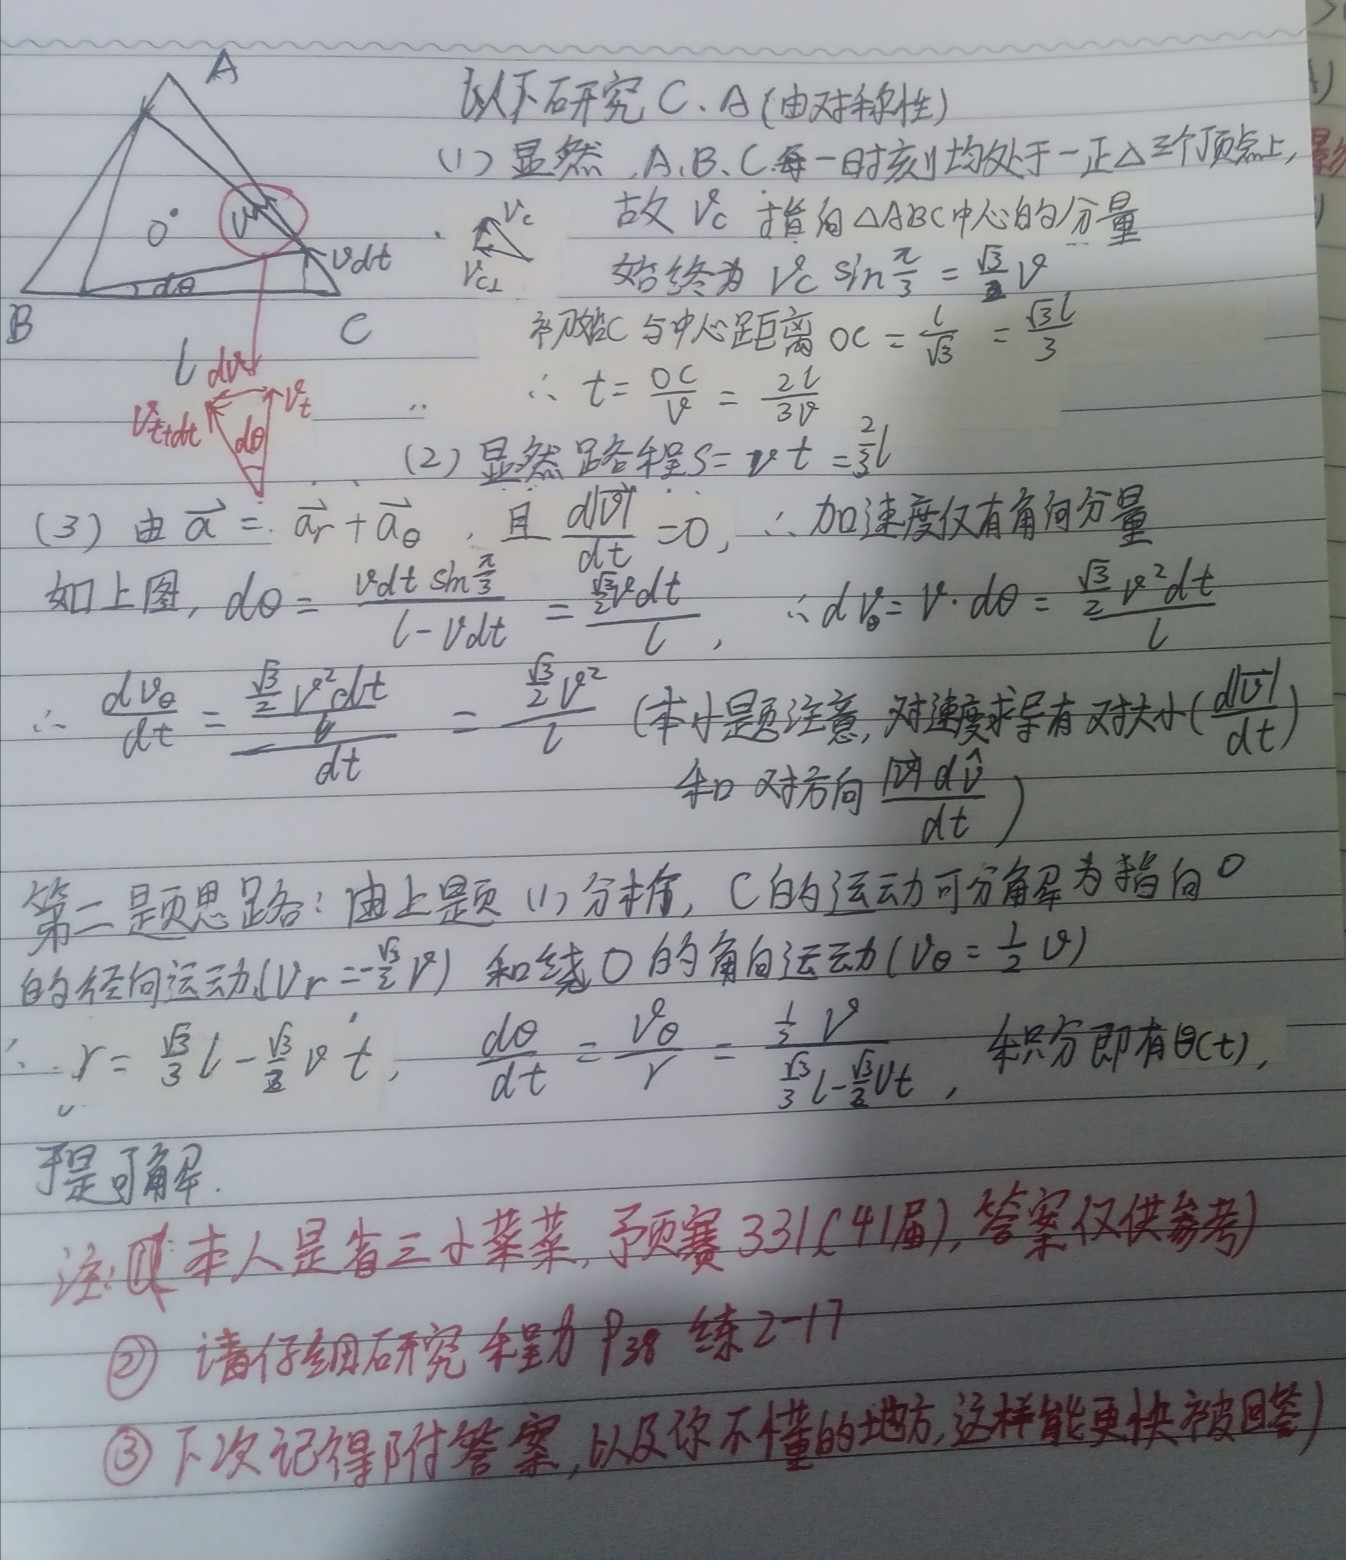 A
B
C
O
v
vdt
dθ
l
dv
v_t
v_{t+dt}
dθ
以下研究C、A(由对称性)
(1)显然,A、B、C每一时刻均处于一正△三个顶点上,
v_C
v_{C⊥}
故 v_C 指向△ABC中心的分量
始终为 v_C sin π/3 = √3/2 v
初始C与中心距离 OC = l/√3 = √3l/3
∴ t = OC/v = 2l/3v
(2)显然路程S=vt=2/3 l
(3)由 a⃗ = a⃗_r + a⃗_θ,且 d|v⃗|/dt =0,∴加速度仅有角向分量
如上图,dθ = vdt sin π/3 / (l-vdt) = √3/2 vdt / l, ∴dv_θ=v·dθ= √3/2 v²dt / l
∴ dv_θ/dt = (√3/2 v²dt / l) / dt = √3/2 v² / l (本小题注意,对速度求导有对大小(d|v⃗|/dt)
和对方向 |v⃗|dv̂/dt)
第二题思路:由上题(1)分析,C的运动可分解为指向O
的径向运动(v_r=-√3/2 v)和绕O的角向运动(v_θ=1/2 v)
∴ r = √3/3 l - √3/2 v t, dθ/dt = v_θ/r = 1/2 v / (√3/3 l - √3/2 vt),积分即有θ(t),
于是可解.
注:① 本人是省三小菜菜,预赛331(41届),答案仅供参考)
② 请仔细研究程力P38 练2-17
③下次记得附答案,以及你不懂的地方,这样能更快被回答)